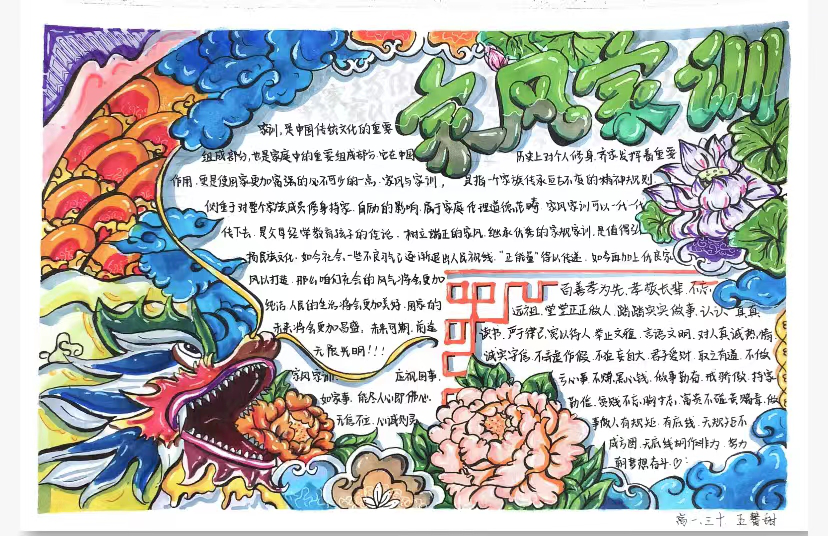 家风家训
家训,是中国传统文化的重要
组成部分,也是家庭中的重要组成部分 它在中国
历史上对个人修身,齐家发挥着重要
作用,更是使国家更加富强的必不可少的一点,家风与家训,
其指一个家族传承至今不变的精神规则
对整个家族成员修身持家、自励的影响,属于家庭伦理道德范畴 家风家训可以一代一代
传下去,是父母经常教育孩子的 树立端正的家风 继承优秀的家规家训,是值得弘
扬民族文化,如今社会,一些不良 逐渐退出人民视线,"正能量"得以传递,如今再加上优良家
风以打造,那么咱们社会的风气将会更加
纯洁 人民的生活将会更加美好,国家的
未来将会更加昌盛,未来可期,前途
无限光明!!!
家风家训: 应视国事,
如家事,能尽人心即佛心,
无信不立,心诚则灵
百善孝为先,孝敬长辈,不忘
远祖,堂堂正正做人,踏踏实实做事,认认真真
读书,严于律己,宽以待人 举止文雅,言语文明,对人真诚热情
诚实守信,不弄虚作假,不妄自大,君子爱财,取之有道,不做
亏心事 不赚黑心钱,做事勤奋,戒骄傲,持家
勤俭,贫贱不忘 富贵不 做
事做人有规矩,有底线,无规矩不
成方圆,无底线 努力
朝梦想奋斗♡:
高一.三十 王馨甜